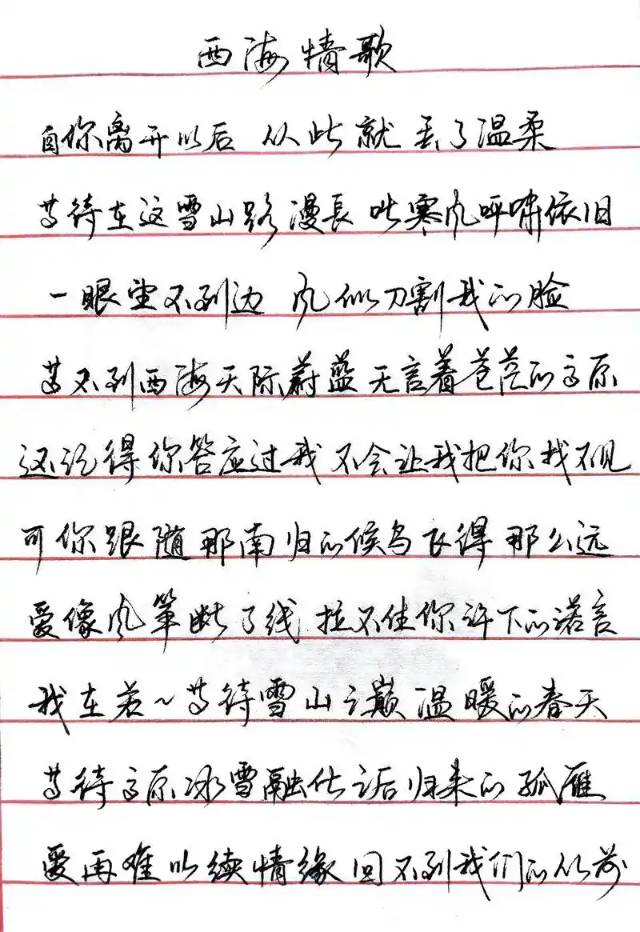 西海情歌
自你离开以后 从此就丢了温柔
等待在这雪山路漫長 听寒风呼啸依旧
一眼望不到边 风似刀割我的脸
等不到西海天际蔚蓝 无言着苍茫的高原
还记得你答应过我 不会让我把你找不见
可你跟随那南归的候鸟飞得那么远
爱像风筝断了线 拉不住你许下的诺言
我在苦~等待雪山之巅温暖的春天
等待高原冰雪融化之后归来的孤雁
爱再难以续情缘 回不到我们的从前